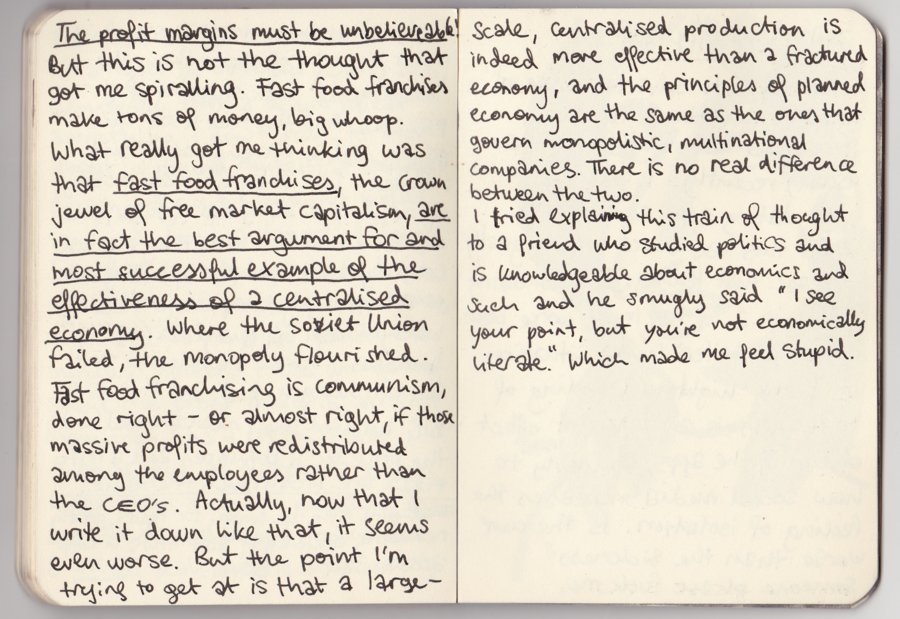 The profit margins must be unbelieveable!
But this is not the thought that
got me spiralling. Fast food franchises
make tons of money, big whoop.
What really got me thinking was
that fast food franchises, the crown
jewel of free market capitalism, are
in fact the best argument for and
most successful example of the
effectiveness of a centralised
economy. Where the Soviet Union
failed, the monopoly flourished.
Fast food franchising is communism,
done right - or almost right, if those
massive profits were redistributed
among the employees rather than
the CEO's. Actually, now that I
write it down like that, it seems
even worse. But the point I'm
trying to get at is that a large-
scale, centralised production is
indeed more effective than a fractured
economy, and the principles of planned
economy are the same as the ones that
govern monopolistic, multinational
companies. There is no real difference
between the two.
I tried explaining this train of thought
to a friend who studied politics and
is knowledgeable about economics and
such and he smugly said "I see
your point, but you're not economically
literate." Which made me feel stupid.